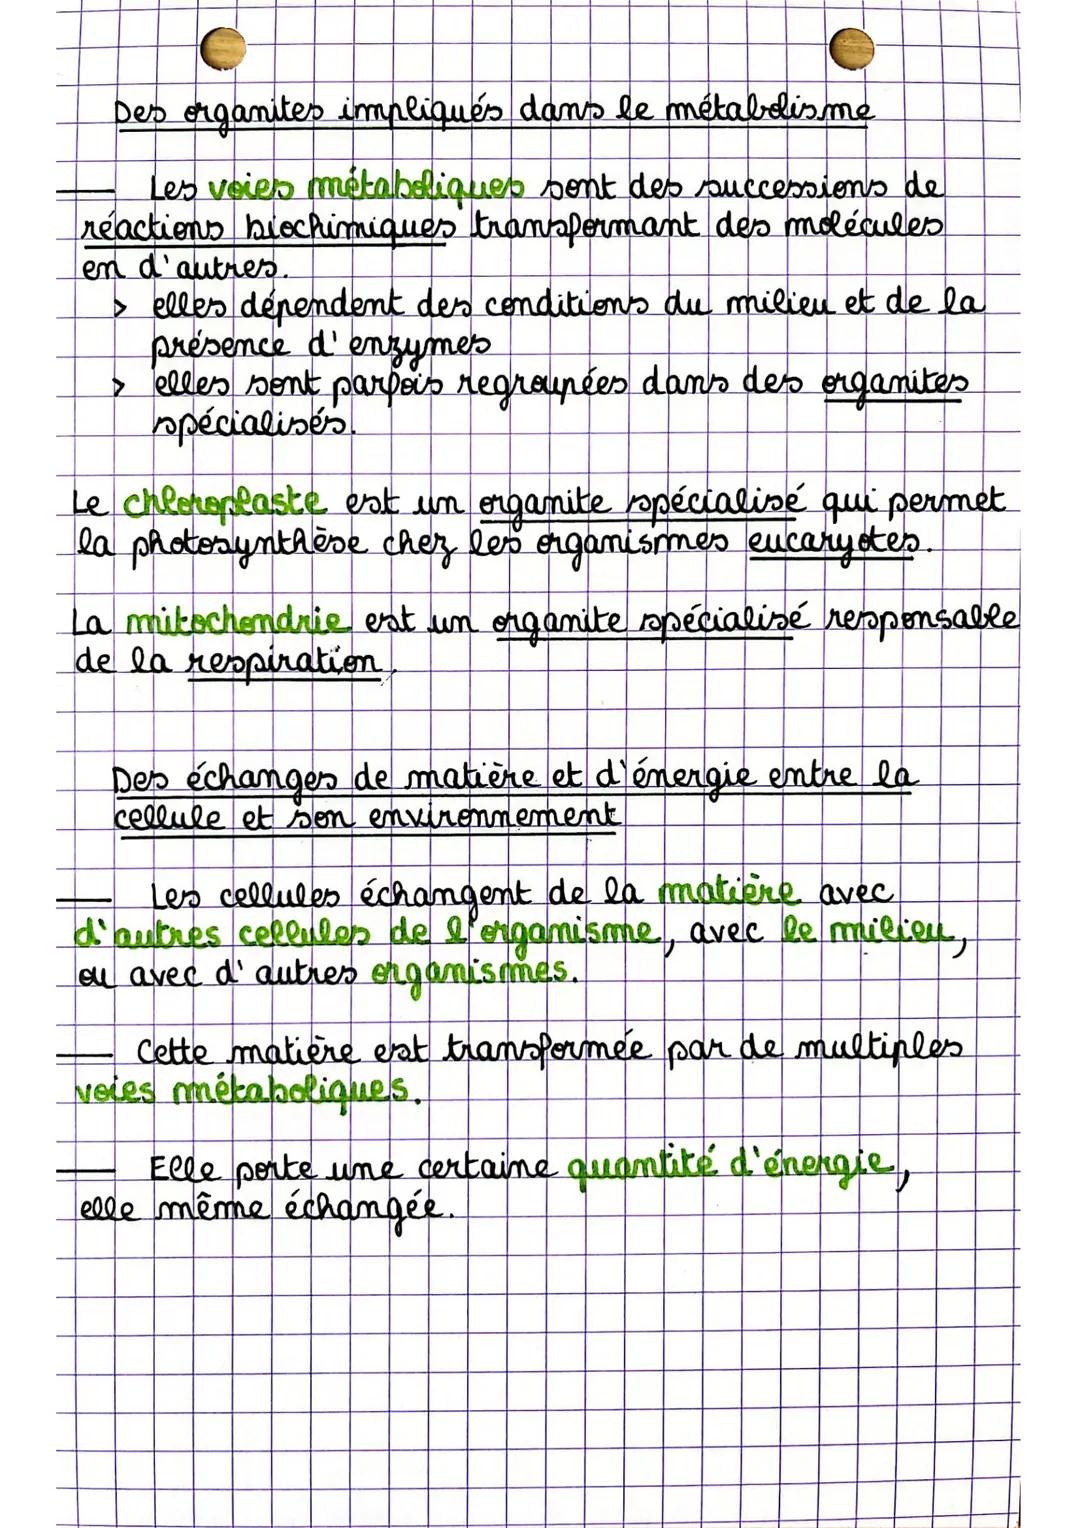 Des organites impliqués dans le métabolisme
Les voies métaboliques sont des successions de
réactions biochimiques transformant des molécules
en d'autres.
> elles dépendent des conditions du milieu et de la
présence d'enzymes
> elles sont parfois regroupées dans des organites
spécialisés.
Le chloroplaste est un organite spécialisé qui permet
la photosynthèse chez les organismes eucaryotes.
La mitochondrie est un organite spécialisé responsable
de la respiration.
Des échanges de matière et d'énergie entre la
cellule et son environnement
Les cellules échangent de la matière avec
d'autres cellules de l'organisme, avec le milieu,
ou avec d'autres organismes.
Cette matière est transformée par de multiples
voies métaboliques.
Elle porte une certaine quantité d'énergie,
elle même échangée.